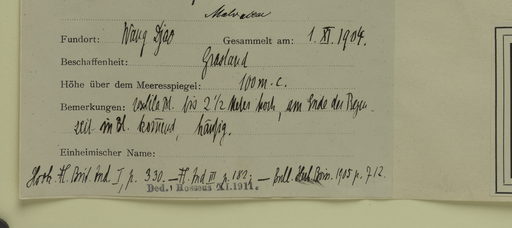 Malvaceen
Fundort: Wang Djao Gesammelt am: 1. XI. 1904.
Beschaffenheit: Grasland
Höhe über dem Meeresspiegel: 100 m. c.
Bemerkungen: bis 2 1/2 Meter hoch, am Ende der Regen-
zeit in Bl. kommend, häufig.
Einheimischer Name:
Hook. Fl. Brit. Ind. I, p. 330. — Fl. Ind. III p. 182. — Bull. Herb. Boiss. 1905 p. 712.
Ded. Hosseus XI.1911.